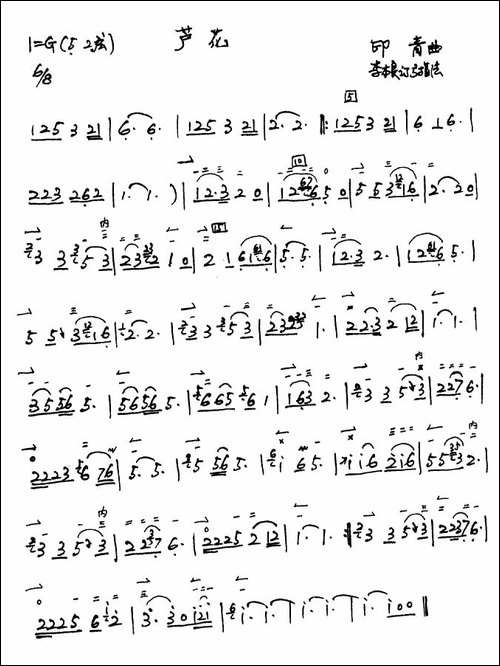 1=G(5 2弦) 芦花 印 青曲
6/8 订弓指法
5
125 3 21 | 6. 6. | 125 3 21 | 2. 2. ‖: 125 3 21 | 6 1 6. |
10
223 262 | 1. 1. ) | 12.3 2 0 | 12 6 5 0 | 5 5 3 16 | 2. 2 0 |
内 15
3 3 5 3 | 2 3 2 1 0 | 2 1 6 1 6 | 5. 5. | 12.3 2. | 12 6 5. |
5 5 3 1 6 | 2. 2. | 3 3 5 3 | 2 3 1. | 2 2.3 2 12 | 1. 1. |
内
3 5 56 5. | 56 56 5. | 665 6 1 | 163 2. | 3 3 5 3 | 2276. |
内
2223 6 76 | 5. 5. | 5 56 5. | i 6 5. | i i 6 2 i 6 | 5 5 3 2. |
内
3 3 5 3 | 2 2 7 6. | 2225 2 12 | 1. 1. :‖ 3 3 5 3 | 2237 6. |
2225 6 2 | 3. 3 0 i 2 i | i. i. | i. i. | i. i 0 0 ‖